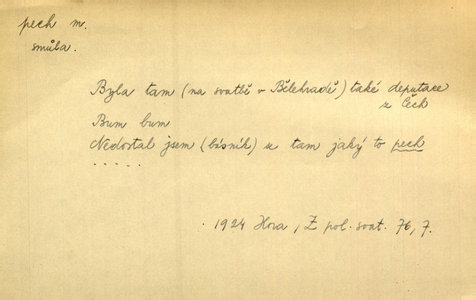 pech m.
smůla.
Byla tam (na svatbě v Bělehradě) také deputace
z Čech
Bum bum
Nedostal jsem (básník) se tam jaký to pech
.....
1924 Hora, Z pol. svat. 76, 7.